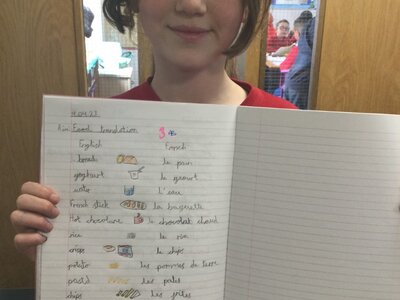 19.04.23
Aim: Food translation
English French
bread le pain
yoghourt le yaourt
water l'eau
French stick la baguette
Hot chocolate le chocolat chaud
rice le riz
crisps le chips
potato les pommes de terre
pasta les pates
chips les frites